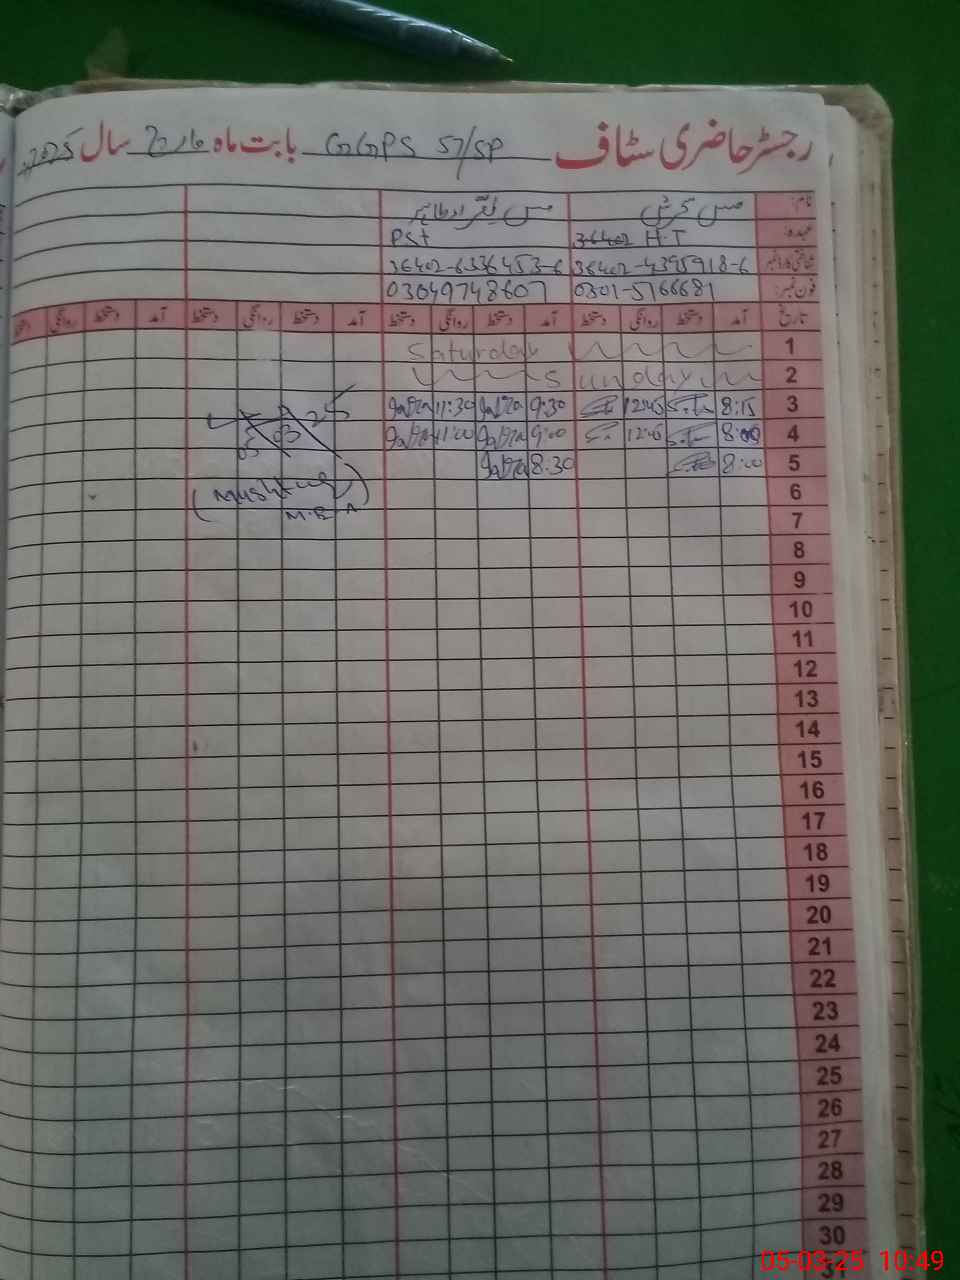 رجسٹر حاضری سٹاف GGPS 57/SP بابت ماہ مارچ سال 2025
نام: مس سحرش مس
عہدہ: H.T PST
شناختی کارڈ نمبر 36402-4395918-6 36402-6336453-6
فون نمبر: 0301-5166681 03049748607
تاریخ آمد دستخط روانگی دستخط آمد دستخط روانگی دستخط آمد دستخط روانگی دستخط آمد دستخط روانگی دستخط
1 Saturday
2 Sunday
3 8:15 12:45 9:30 11:30
4 8:00 12:45 9:00 11:00
5 8:00 8:30
05 03 25
(Mushtaq)
6
7
8
9
10
11
12
13
14
15
16
17
18
19
20
21
22
23
24
25
26
27
28
29
30
31
05-03-25 10:49